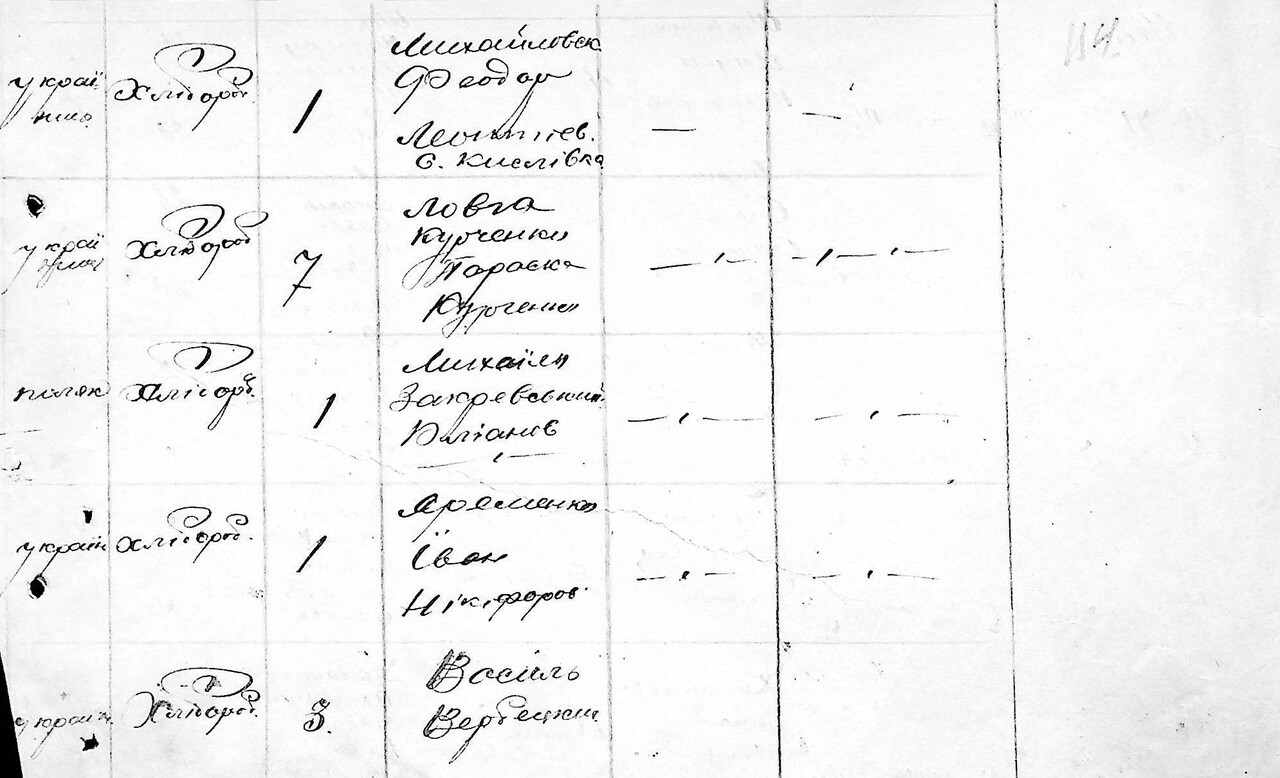 114
україн
ка
Хлібороб.
1
Михайловськ
Феодор
Леонтіев.
с. Кислівка
—
—
україн
Хлібороб
7
Ловга
Курченко
Параска
Курченко
— ı —
— ı — ı —
поляк
Хлібороб.
1
Михайло
Закревський
Юліанов
— ı —
— ı —
— ı —
україн
Хлібороб.
1
Яременко
Іван
Нікіфоров
— ı —
— ı —
україн.
Хлібороб.
3.
Василь
Вербецкий